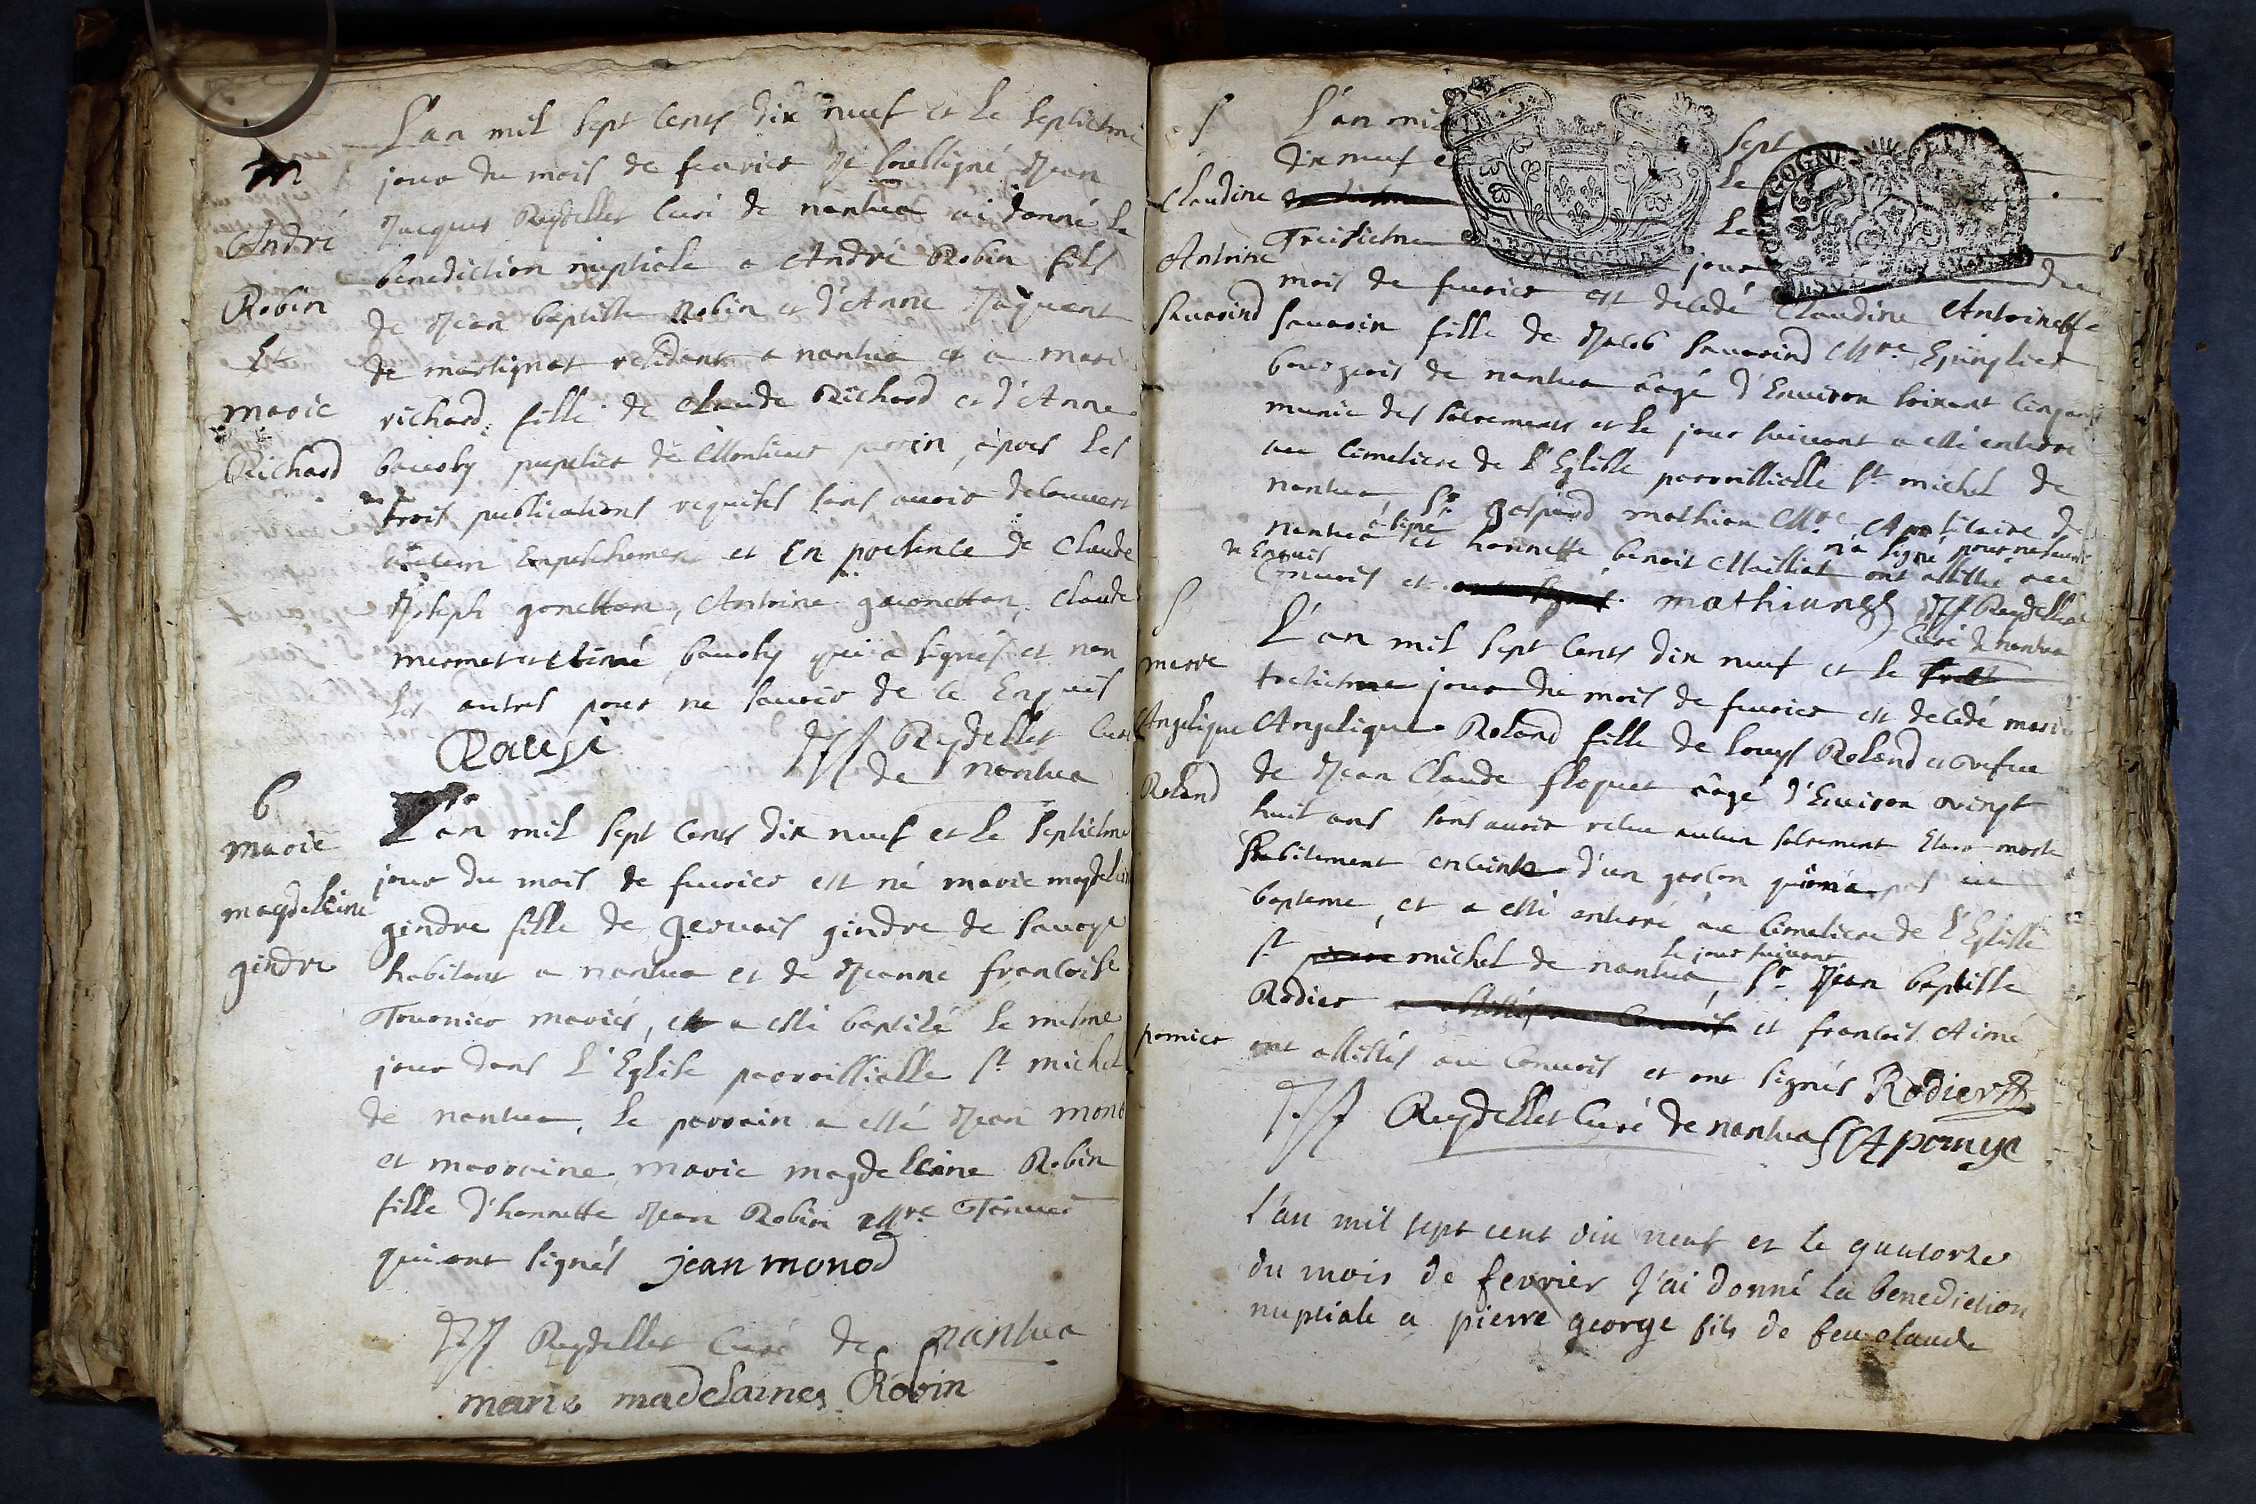 m
André
Robin
Et
marie
Richard
L'an mil sept Cents dix neuf et Le septiesme
jour du mois de feurier Je soussigné Jean
Jacques Reydellet Curé de nantua ai donné La
benediction nuptiale a André Robin fils
de Jean baptiste Robin et d'Anne Jaquent
de martignat residant a nantua et a marie
richard fille de Claude Richard et d'Anne
baudy de Monsieur perrin, apres Les
trois publications requises sans auoir descouuert
Empeschement et En presence de Claude
Joseph gonettan, Antoine gaconettan, Claude
mermet et baudy qui a signés et non
Les autres pour ne sauoir de ce Enquis
JJ Reydellet Curé
de nantua
b
marie
magdeleine
gindre
L'an mil sept Cents dix neuf et Le septiesme
jour du mois de feurier est né marie magdeleine
gindre fille de geruais gindre de sauoye
habitant a nantua et de Jeanne francoise
Touonier mariés, et a esté baptisé Le mesme
jour dans L'Eglise parroissialle St michel
de nantua, Le parrain a esté Jean mono
et marraine marie magdeleine Robin
fille d'honneste Jean Robin Mre
qui ont signés jean monod
JJ Reydellet Curé de nantua
marie madelaines Robin
S
Claudine
Antoine
Sauarind
L'an mil sept
dix neuf et Le
Treisiesme jour
mois de feurier est decedé Claudine Antoinette
sauarin fille de Jacob Sauarind Mre Epinglier
bourgeois de nantua aagé d'Enuiron soixant cinq ans
munie des sacrements et Le jour suiuant a esté enterré
au Cimetiere de L'Eglise parroissialle St michel de
nantua, Sr gaspard mathieu Mre Apotiquaire de
nantua a signé et honneste benoit Mailliat n'a signé pour ne sauoir
de Enquis ont assisté au
Conuois et mathieu JJ Reydellet
Curé de nantua
S
marie
Angelique
Roland
pornier
L'an mil sept Cents dix neuf et Le
treiziesme jour du mois de feurier est decedé marie
Angelique Roland fille de Louys Roland et vefue
de Jean Claude floquet aagé d'Enuiron vingt
huit ans sans auoir receu aucun sacrement Etant morte
subitement enceinte d'un garcon qui n'a pas eu
bapteme, et a esté enterré au Cimetiere de L'Eglise
St michel de nantua le jour suiuant, Sr Jean baptiste
Rodier et francois Aimé
ont assistés au Conuois et ont signés Rodier
JJ Reydellet Curé de nantua
L'an mil sept cent dix neuf et le quatorze
du mois de fevrier J'ai donné la benediction
nuptiale a pierre george fils de feu claude